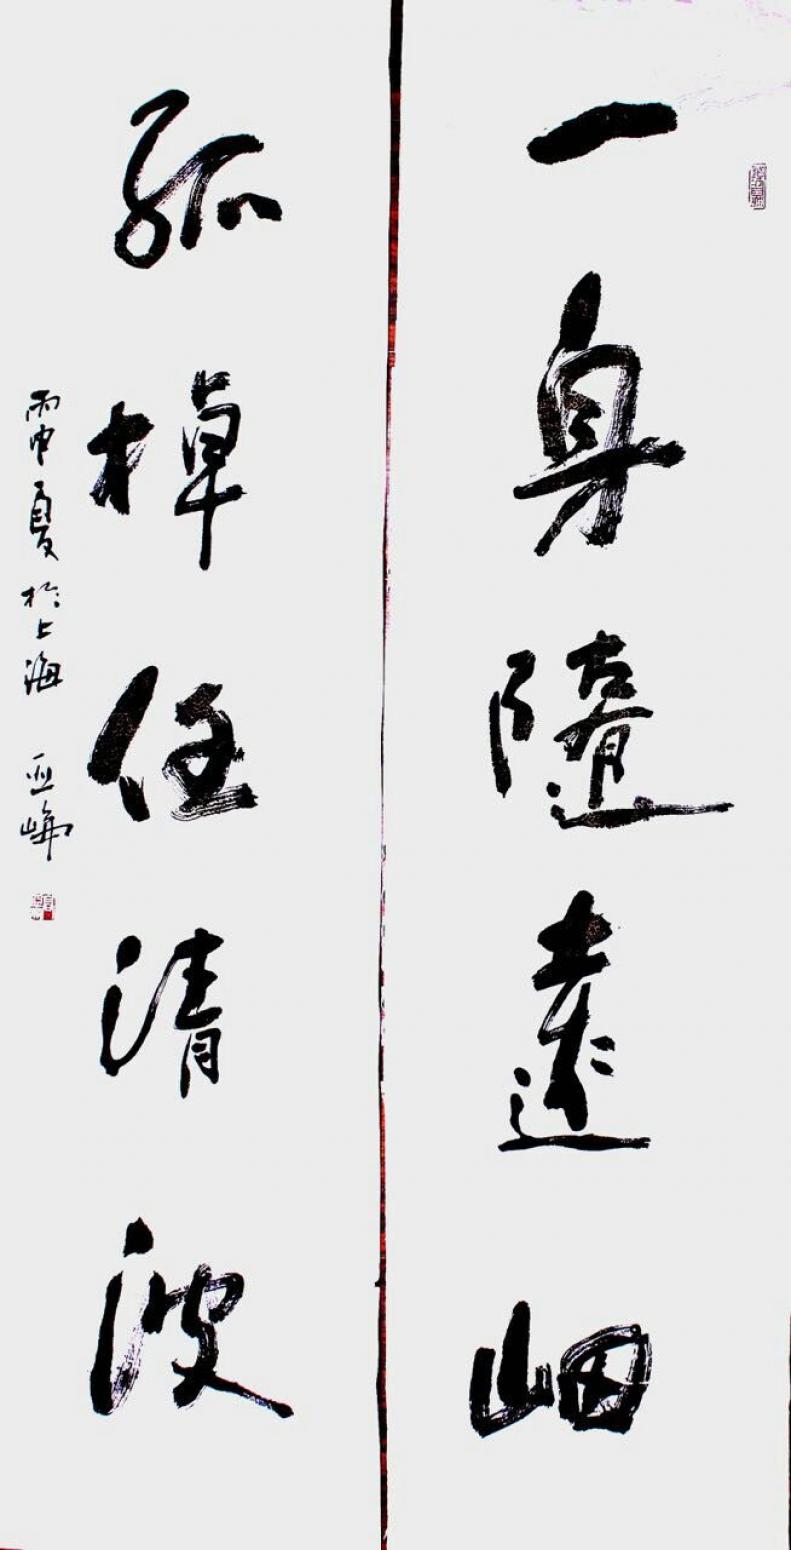 一身隨遠岫
孤棹任清波
丙申夏於上海 亚